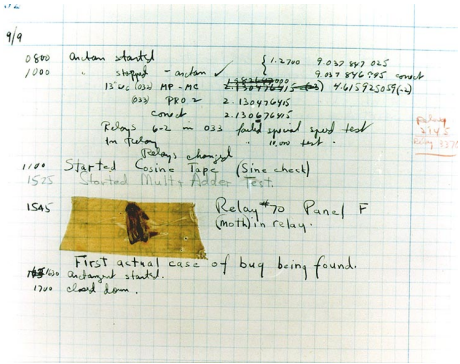 9/9
0800 Antan started
1000 " stopped - antan ✓ { 1.2700 9.037 847 025
9.037 846 995 correct
13"uc (033) MP-MC 4.615925059(-2)
(033) PRO 2 2.130476415
correct 2.130676415
Relays 6-2 in 033 failed special speed test
in Relay " 10.000 test.
Relay
2145
Relay 3370
Relays changed
1100 Started Cosine Tape (Sine check)
1525 Started Mult+Adder Test.
1545 Relay #70 Panel F
(moth) in relay.
First actual case of bug being found.
1630 antangent started.
1700 closed down.